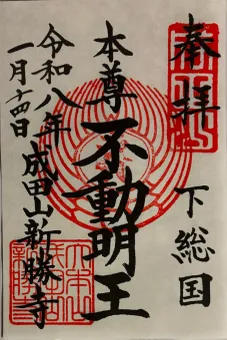 奉拝
下総国
本尊
不動明王
令和八年
一月十四日
成田山新勝寺